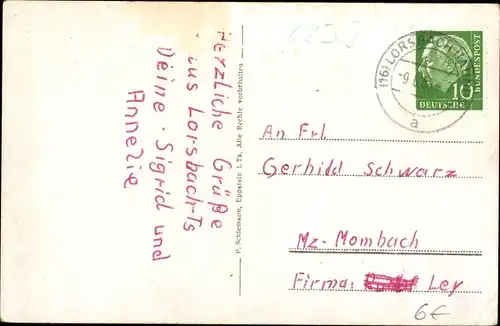 Herzliche Grüße
aus Lorsbach-Ts
Deine Sigrid und
Annelie
P. Schlemann, Eppstein i. Ts. Alle Rechte vorbehalten
(16) LORSBACH
a
10
DEUTSCHE
BUNDESPOST
An Frl
Gerhild Schwarz
Mz-Mombach
Firma: Ley
6€